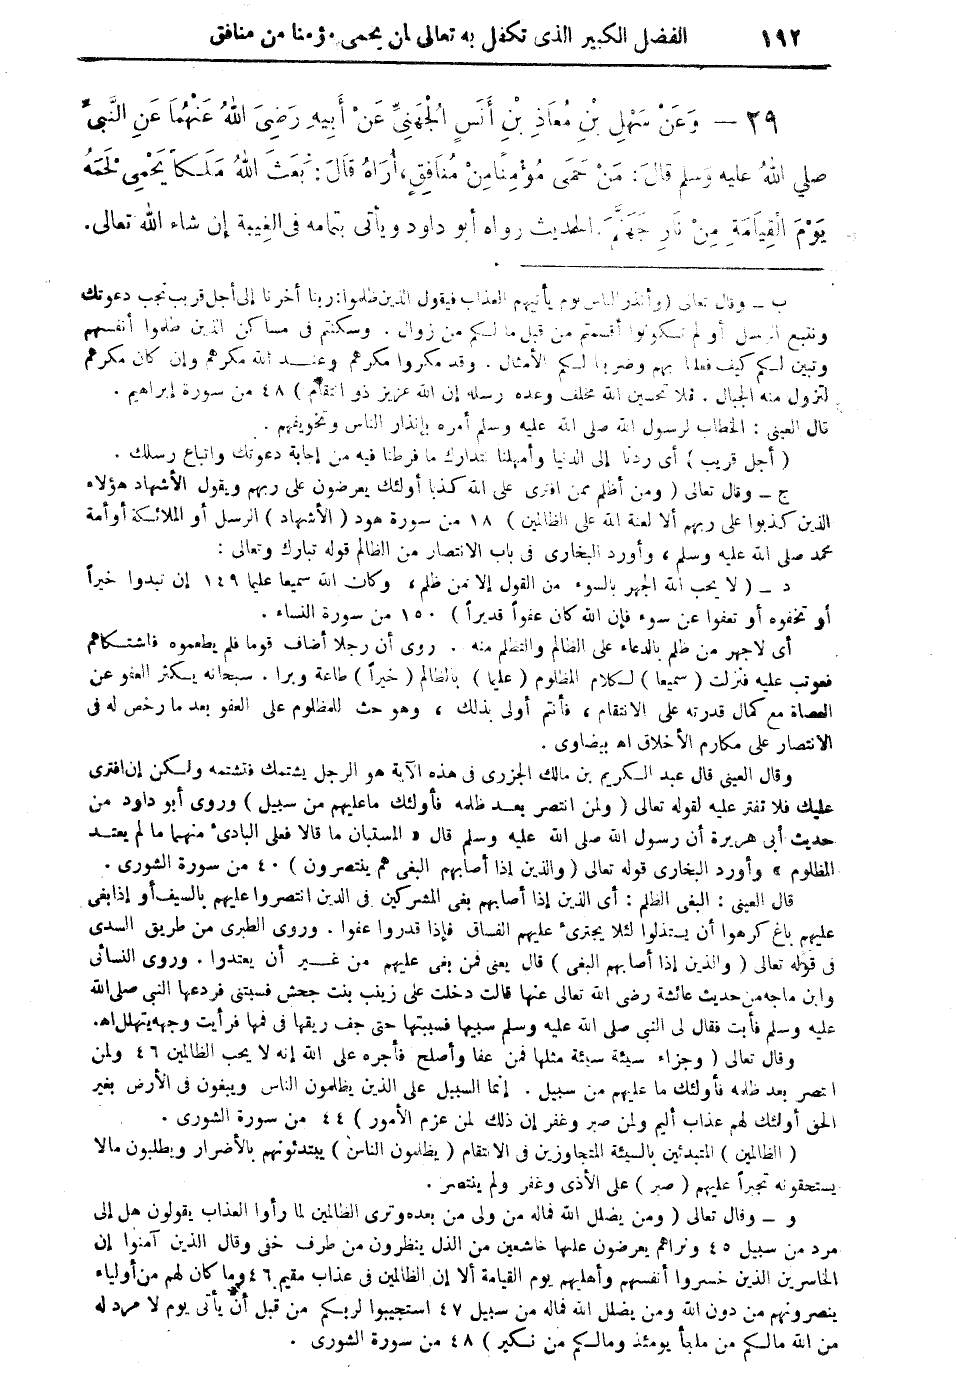 ١٩٢ الفضل الكبير الذى تكفل به تعالى لمن يحمى مؤمنا من منافق
٢٩ — وَعَنْ سَهْلِ بْنِ مُعَاذِ بْنِ أَنَسٍ الْجُهَنِيِّ عَنْ أَبِيهِ رَضِيَ اللهُ عَنْهُمَا عَنِ النَّبِيِّ
صلي اللهُ عليه وَسلم قَالَ: مَنْ حَمَى مُؤْمِنًا مِنْ مُنَافِقٍ، أُرَاهُ قَالَ: بَعَثَ اللهُ مَلَكاً يَحْمِي لَحْمَهُ
يَوْمَ الْقِيَامَةِ مِنْ نَارِ جَهَنَّمَ. الحديث رواه أبو داود ويأتى بتمامه فى الغِيبة إن شاء الله تعالى.
ب — وقال تعالى (وأنذر الناس يوم يأتيهم العذاب فيقول الذين ظلموا: ربنا أخرنا إلى أجل قريب نجب دعوتك
ونتبع الرسل أو لم تكونوا أقسمتم من قبل ما لكم من زوال . وسكنتم فى مساكن الذين ظلموا أنفسهم
وتبين لكم كيف فعلنا بهم وضربنا لكم الأمثال . وقد مكروا مكرهم وعند الله مكرهم وإن كان مكرهم
لتزول منه الجبال . فلا تحسبن الله مخلف وعده رسله إن الله عزيز ذو انتقام ) ٤٨ من سورة إبراهيم .
قال العينى : الخطاب لرسول الله صلى الله عليه وسلم أمره بإنذار الناس وتخويفهم .
( أجل قريب ) أى ردنا إلى الدنيا وأمهلنا نتدارك ما فرطنا فيه من إجابة دعوتك واتباع رسلك .
ج — وقال تعالى ( ومن أظلم ممن افترى على الله كذبا أولئك يعرضون على ربهم ويقول الأشهاد هؤلاء
الذين كذبوا على ربهم ألا لعنة الله على الظالمين ) ١٨ من سورة هود ( الأشهاد ) الرسل أو الملائكة أو أمة
محمد صلى الله عليه وسلم ، وأورد البخارى فى باب الانتصار من الظالم قوله تبارك وتعالى :
د — ( لا يحب الله الجهر بالسوء من القول إلا من ظلم، وكان الله سميعا عليما ١٤٩ إن تبدوا خيراً
أو تخفوه أو تعفوا عن سوء فإن الله كان عفواً قديراً ) ١٥٠ من سورة النساء .
أى لاجهر من ظلم بالدعاء على الظالم والتظلم منه . روى أن رجلا أضاف قوما فلم يطعموه فاشتكاهم
فعوتب عليه فنزلت ( سميعا ) لكلام المظلوم ( عليما ) بالظالم ( خيراً ) طاعة وبرا . سبحانه يكثر العفو عن
العصاة مع كمال قدرته على الانتقام ، فأنتم أولى بذلك ، وهو حث للمظلوم على العفو بعد ما رخص له فى
الانتصار على مكارم الأخلاق اه بيضاوى .
وقال العينى قال عبد الكريم بن مالك الجزرى فى هذه الآية هو الرجل يشتمك فتشتمه ولكن إن افترى
عليك فلا تفتر عليه لقوله تعالى ( ولمن انتصر بعد ظلمه فأولئك ما عليهم من سبيل ) وروى أبو داود من
حديث أبى هريرة أن رسول الله صلى الله عليه وسلم قال « المستبان ما قالا فعلى البادىء منهما ما لم يعتد
المظلوم » وأورد البخارى قوله تعالى ( والذين إذا أصابهم البغى هم ينتصرون ) ٤٠ من سورة الشورى .
قال العينى : البغى الظلم : أى الذين إذا أصابهم بغى المشركين فى الدين انتصروا عليهم بالسيف أو إذا بغى
عليهم باغ كرهوا أن يستذلوا لئلا يجترىء عليهم الفساق فإذا قدروا عفوا . وروى الطبرى من طريق السدى
فى قوله تعالى ( والذين إذا أصابهم البغى ) قال يعنى فمن بغى عليهم من غير أن يعتدوا . وروى النسائى
وابن ماجه من حديث عائشة رضى الله تعالى عنها قالت دخلت على زينب بنت جحش فسبتنى فردعها النبى صلى الله
عليه وسلم فأبت فقال لى النبى صلى الله عليه وسلم سبيها فسببتها حتى جف ريقها فى فمها فرأيت وجهه يتهلل اه.
وقال تعالى ( وجزاء سيئة سيئة مثلها فمن عفا وأصلح فأجره على الله إنه لا يحب الظالمين ٤٦ ولمن
انتصر بعد ظلمه فأولئك ما عليهم من سبيل . إنما السبيل على الذين يظلمون الناس ويبغون فى الأرض بغير
الحق أولئك لهم عذاب أليم ولمن صبر وغفر إن ذلك لمن عزم الأمور ) ٤٤ من سورة الشورى .
( الظالمين ) المتبدئين بالسيئة المتجاوزين فى الانتقام ( يظلمون الناس ) يبتدئونهم بالأضرار ويطلبون مالا
يستحقونه تجبراً عليهم ( صبر ) على الأذى وغفر ولم ينتصر .
و — وقال تعالى ( ومن يضلل الله فماله من ولى من بعده وترى الظالمين لما رأوا العذاب يقولون هل إلى
مرد من سبيل ٤٥ وتراهم يعرضون عليها خاشعين من الذل ينظرون من طرف خفى وقال الذين آمنوا إن
الخاسرين الذين خسروا أنفسهم وأهليهم يوم القيامة ألا إن الظالمين فى عذاب مقيم ٤٦ وما كان لهم من أولياء
ينصرونهم من دون الله ومن يضلل الله فماله من سبيل ٤٧ استجيبوا لربكم من قبل أن يأتى يوم لا مرد له
من الله مالكم من ملجأ يومئذ ومالكم من نكير ) ٤٨ من سورة الشورى .